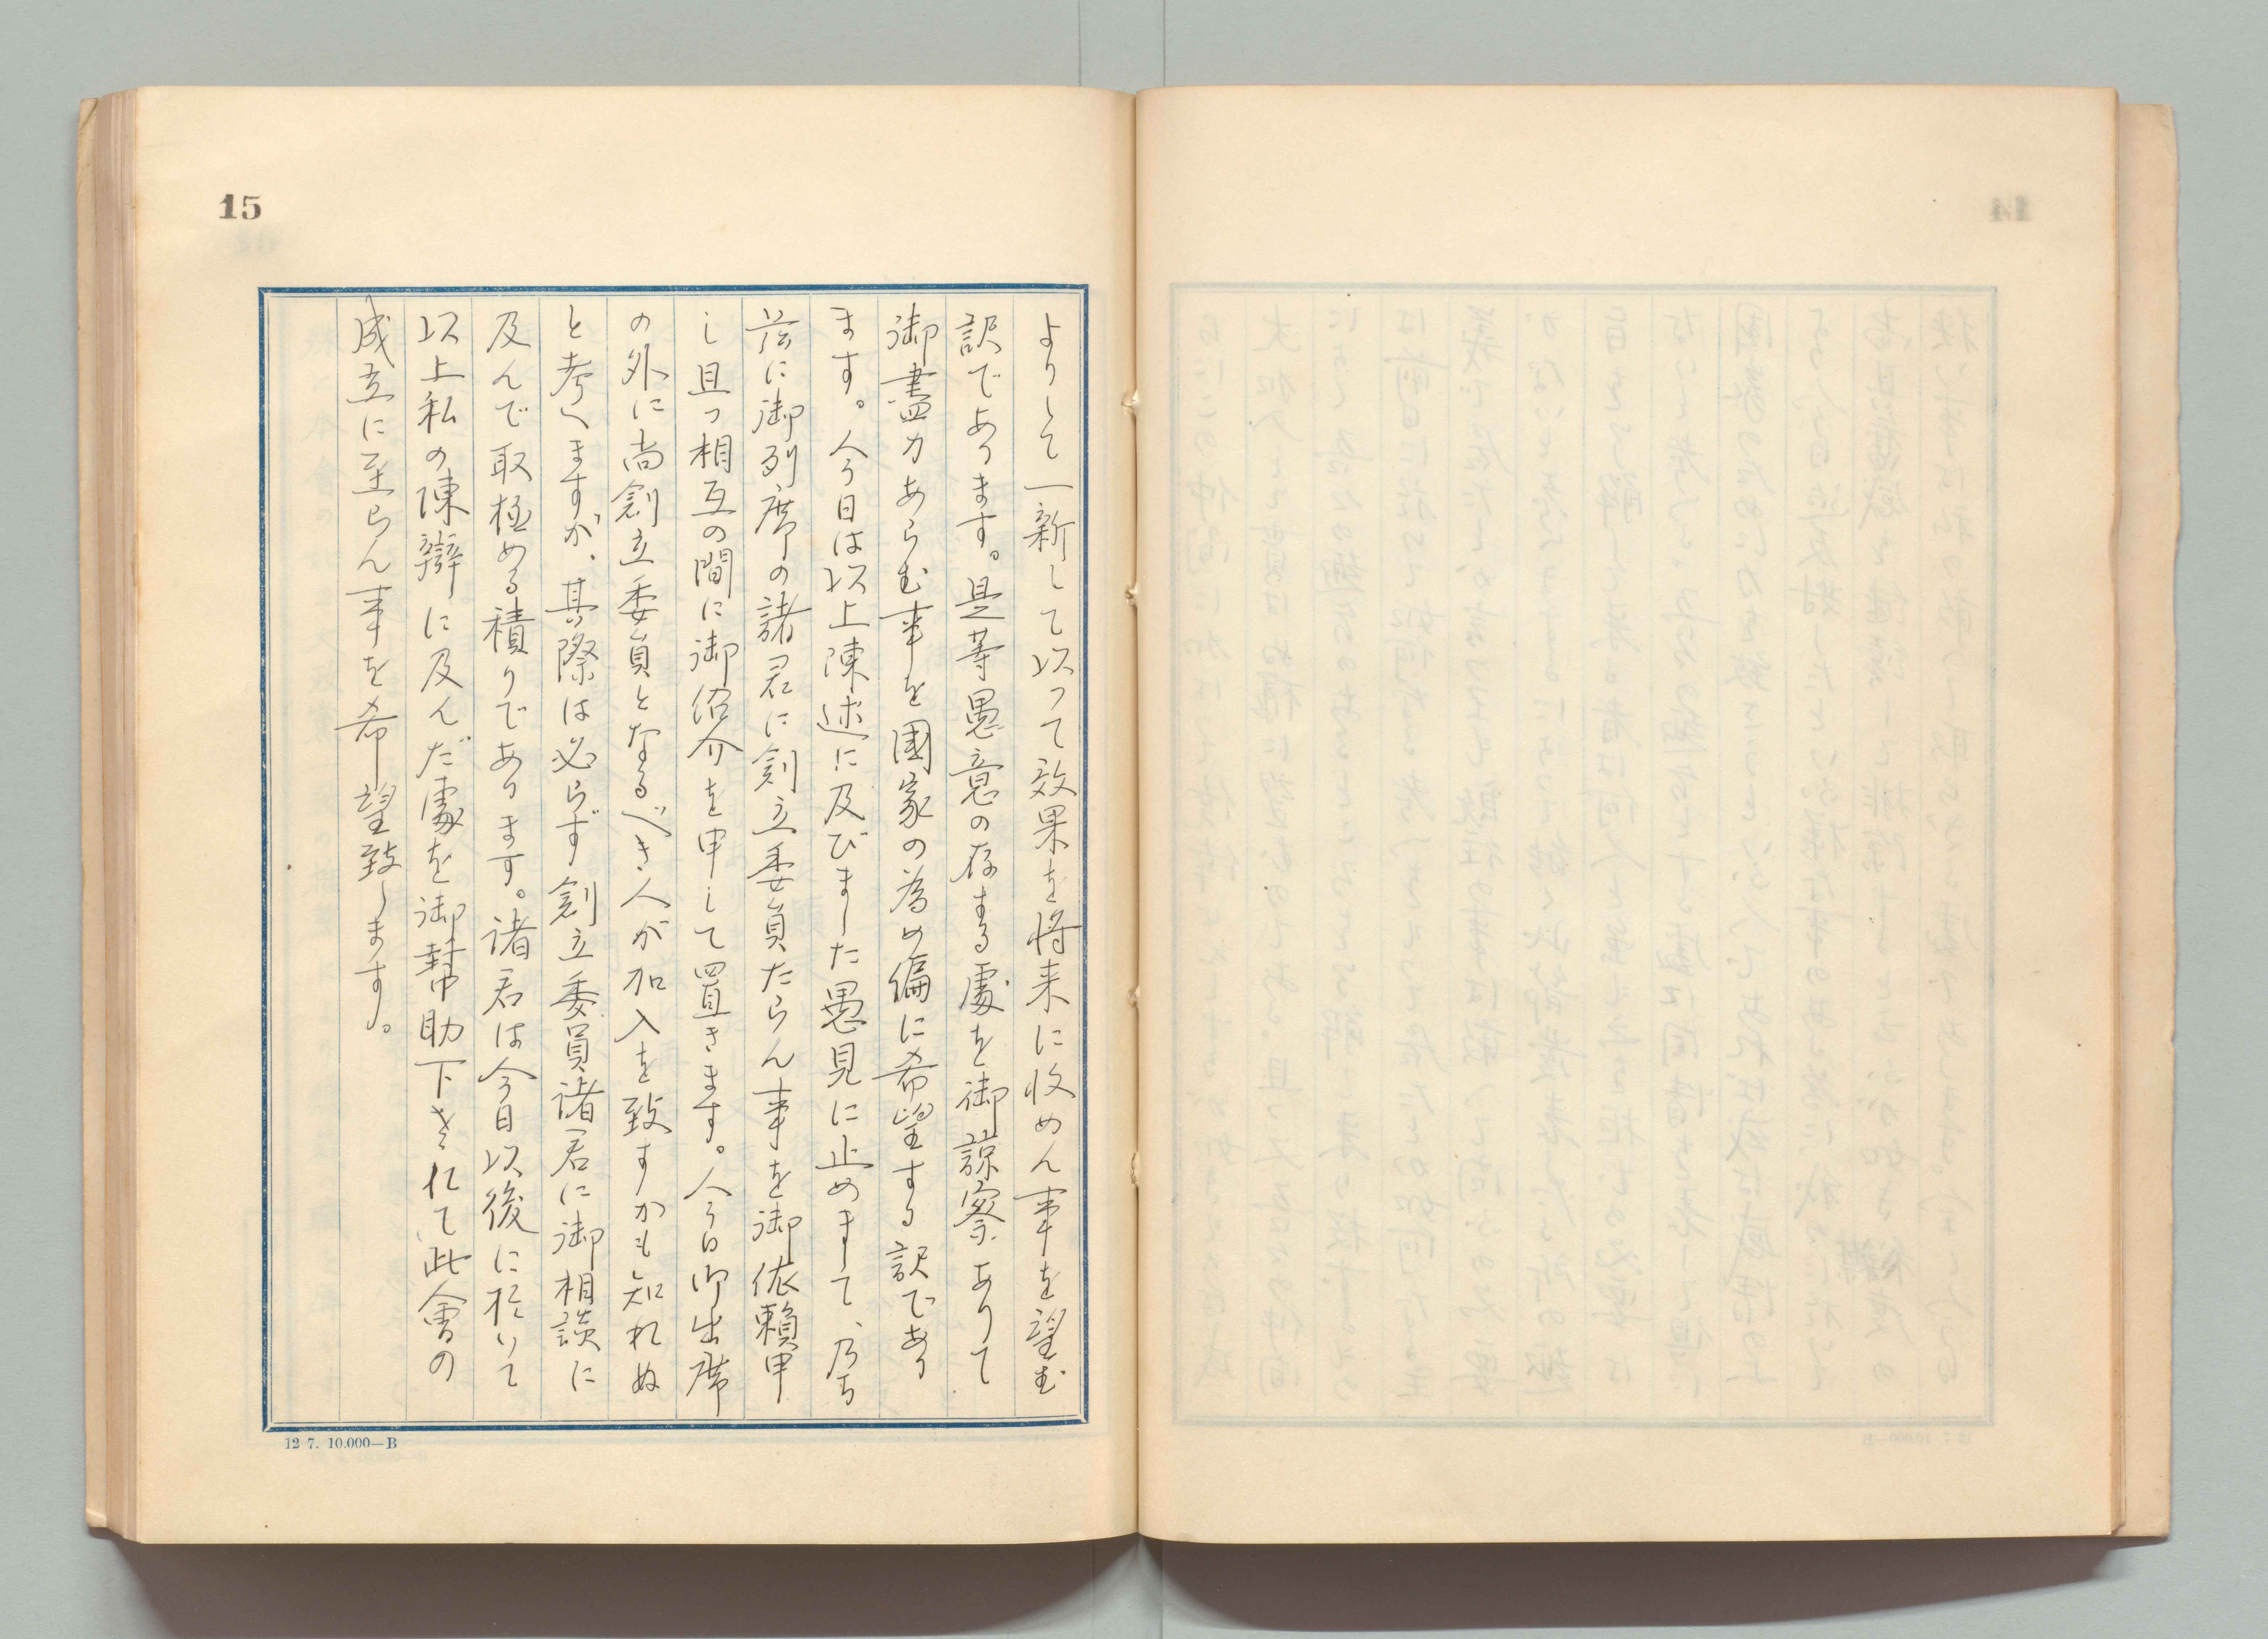 15
よりして一新して以つて效果を将来に收めん事を望む
訳であります。是等愚意の存する處を御諒察ありて
御盡力あらむ事を國家の為め偏に希望する訳であり
ます。今日は以上陳述に及びました愚見に止めまして、乃ち
茲に御列席の諸君に創立委員たらん事を御依頼申
し且つ相互の間に御紹介を申して置きます。今日御出席
の外に尚創立委員となるべき人が加入を致すかも知れぬ
と考へますが、其際は必らず創立委員諸君に御相談に
及んで取極める積りであります。諸君は今日以後に於いて
以上私の陳辯に及んだ處を御幇助下されて此會の
成立に至らん事を希望致します。
12 7. 10.000—B